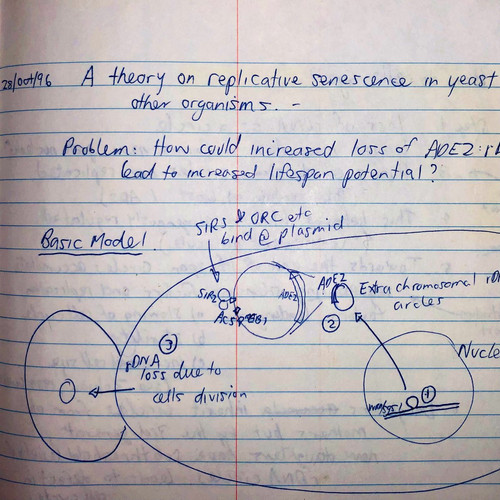 28/Oct/96 A theory on replicative senescence in yeast
other organisms. -
Problem: How could increased loss of ADE2: rD
lead to increased lifespan potential?
SIRS & ORC etc
bind @ plasmid
Basic Model.
SIRS
ADE2
ADE2
Extrachromosomal rD
circles
②
③
rDNA
loss due to
cells division
Nucle
①